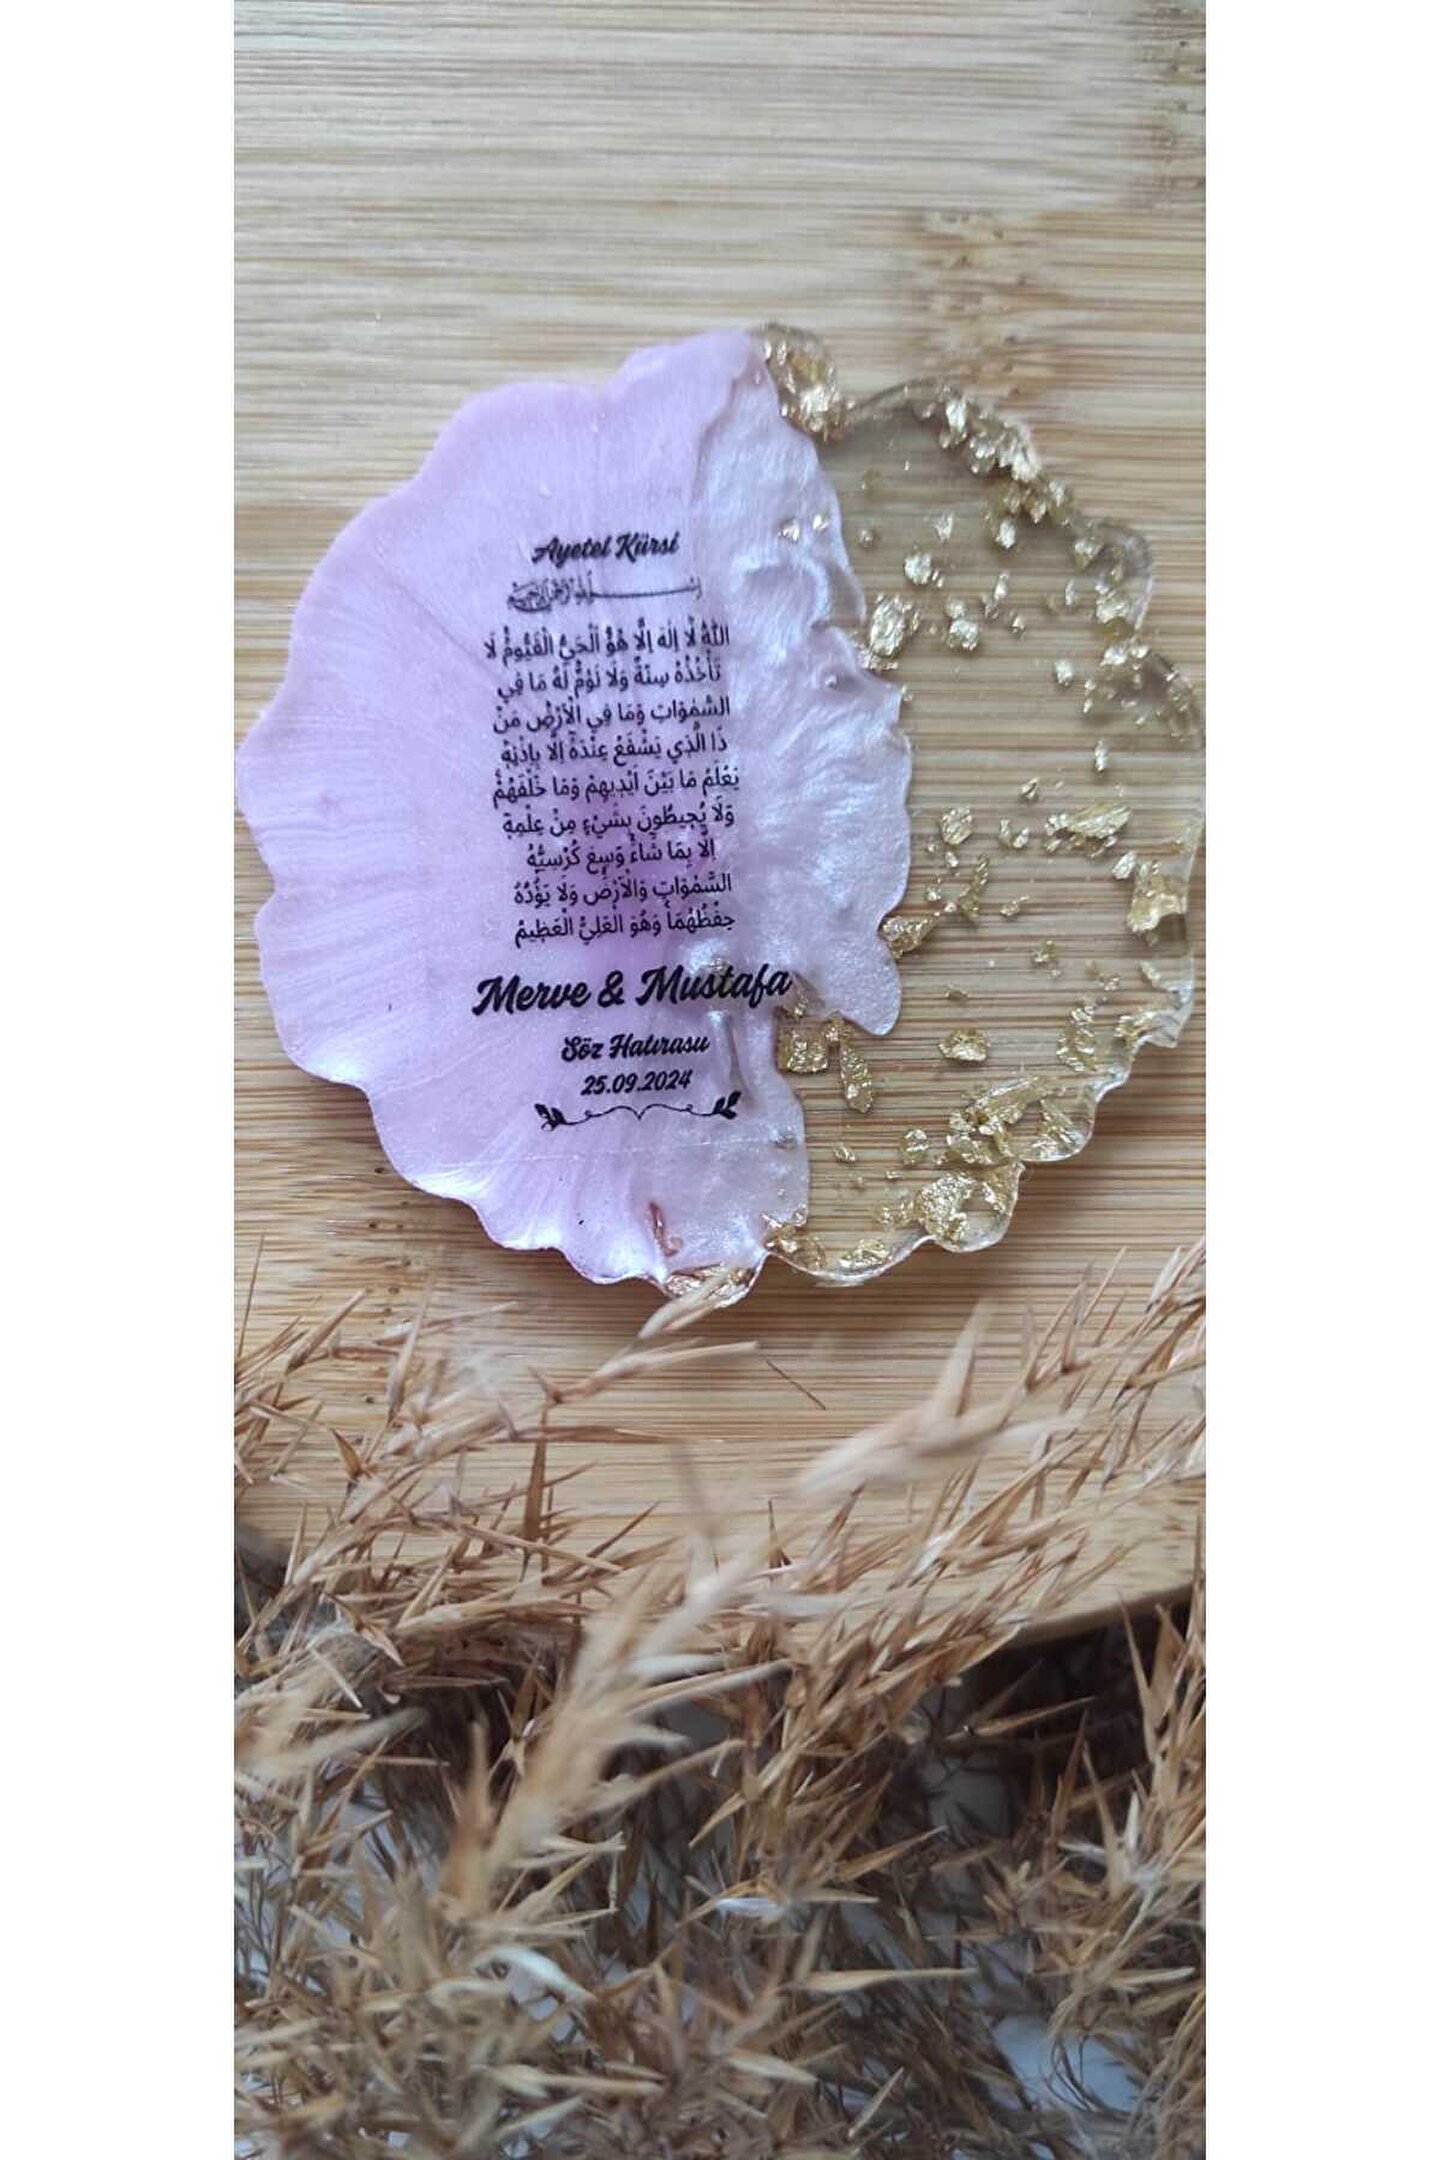 Ayetel Kürsi
بسم الله الرحمن الرحيم
اَللّٰهُ لَٓا اِلٰهَ اِلَّا هُوَۚ اَلْحَيُّ الْقَيُّومُۚ لَا
تَأْخُذُهُ سِنَةٌ وَلَا نَوْمٌۜ لَهُ مَا فِي
السَّمٰوَاتِ وَمَا فِي الْاَرْضِۜ مَنْ
ذَا الَّذِي يَشْفَعُ عِنْدَهُٓ اِلَّا بِاِذْنِهِۜ
يَعْلَمُ مَا بَيْنَ اَيْدِيهِمْ وَمَا خَلْفَهُمْۚ
وَلَا يُحِيطُونَ بِشَيْءٍ مِنْ عِلْمِهِٓ
اِلَّا بِمَا شَٓاءَۚ وَسِعَ كُرْسِيُّهُ
السَّمٰوَاتِ وَالْاَرْضَۚ وَلَا يَؤُ۫دُهُ
حِفْظُهُمَاۚ وَهُوَ الْعَلِيُّ الْعَظِيمُ
Merve & Mustafa
Söz Hatırası
25.09.2024